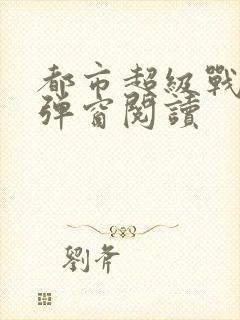 都市超級戰
彈窗閱讀
劉斧